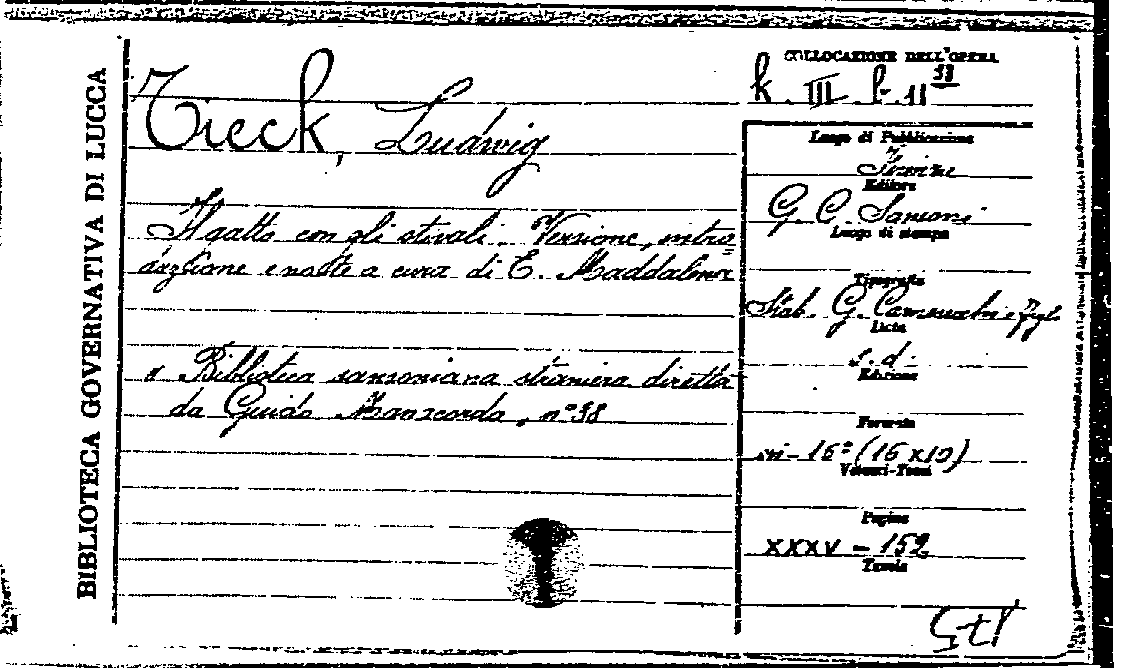 BIBLIOTECA GOVERNATIVA DI LUCCA
Tieck, Ludwig
Il gatto con gli stivali. Versione, intro=
duzione e note a cura di E. Maddalena
Biblioteca sansoniana straniera diretta
da Guido Manacorda, n° 58
COLLOCAZIONE DELL'OPERA
k. III f. 11 58
Luogo di Pubblicazione
Firenze
Editore
G. C. Sansoni
Luogo di stampa
Tipografia
Stab. G. Carnesecchi e figli
Data
s. d.
Edizione
Formato
in-16° (16 x 10)
Volumi-Tomi
Pagine
XXXV - 152
Tavole